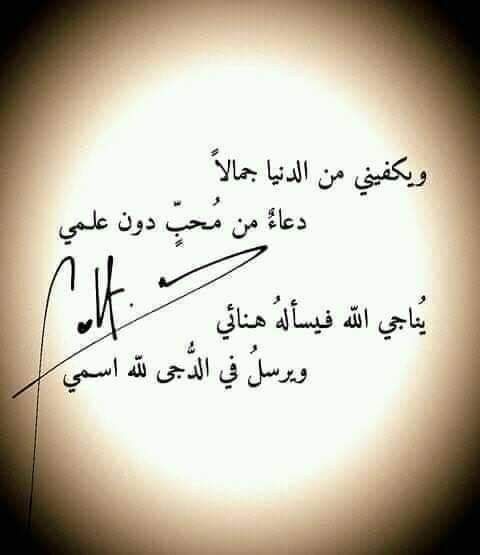 ويكفيني من الدنيا جمالاً
دعاءٌ من مُحبٍّ دون علمي
يُناجي الله فيسألهُ هنائي
ويرسلُ في الدُّجى لله اسمي